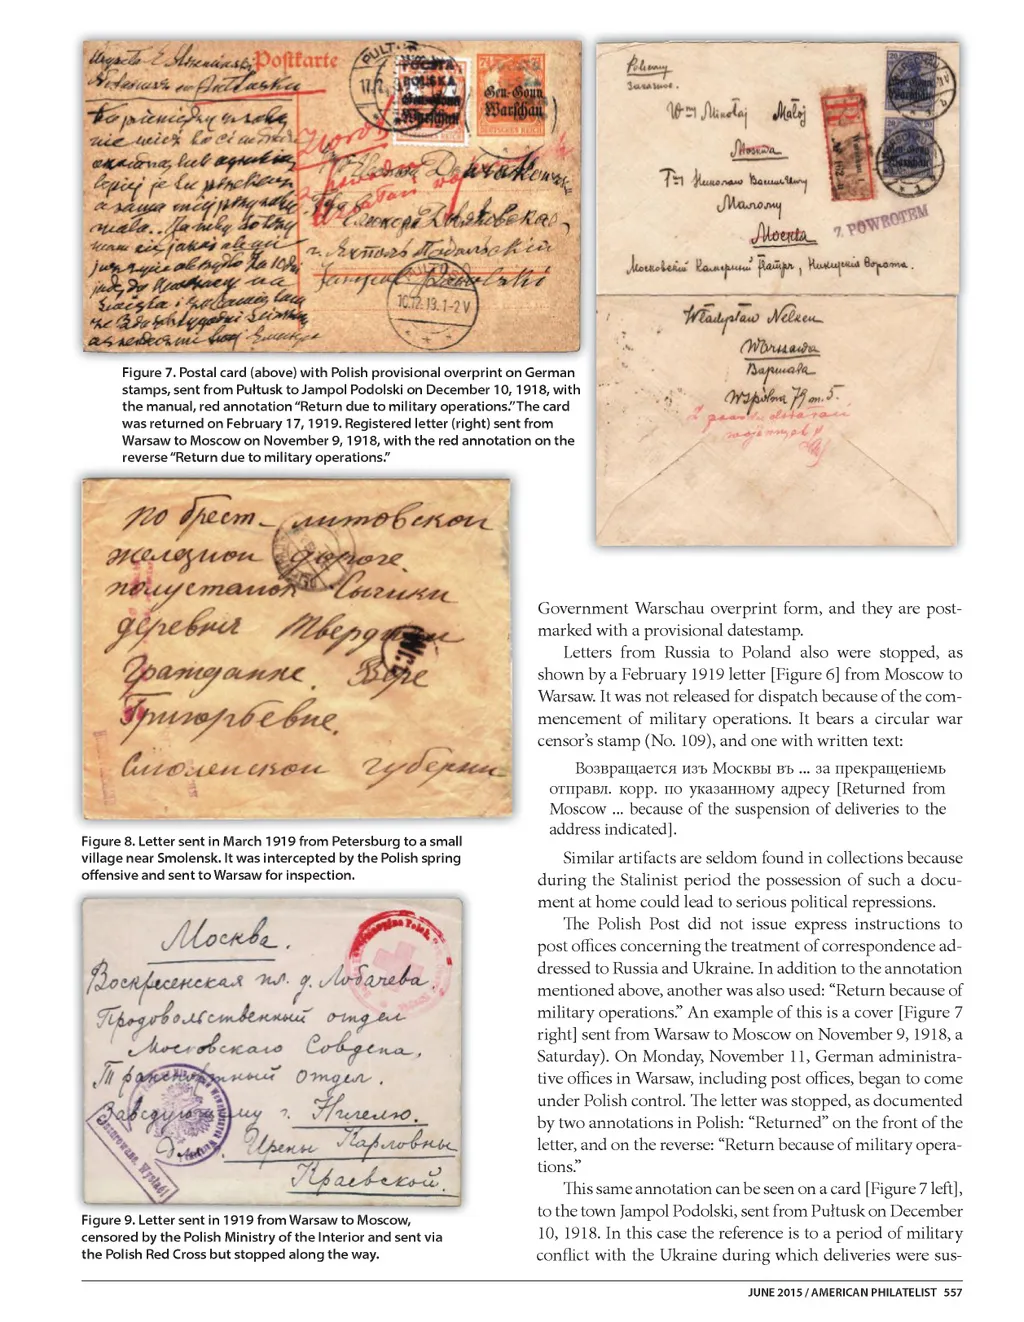 Postkarte
PUŁT
POCZTA
POLSKA
Gen-Gouv.
Warschau
Gen-Gouv.
Warschau
DEUTSCHES REICH
10.12.18.1-2 V
Polecony
Заказное.
Wny Mikołaj Małoj
Moskwa
Николаю Васильевичу
Малому
Москва
Z POWROTEM
Московскій Камерный Театръ, Никитскія Ворота.
Gen-Gouv.
Warschau
Gen-Gouv.
Warschau
Władysław Nelken
Warszawa
Варшава
Wspólna 79 m. 5.
Figure 7. Postal card (above) with Polish provisional overprint on German
stamps, sent from Pułtusk to Jampol Podolski on December 10, 1918, with
the manual, red annotation “Return due to military operations.” The card
was returned on February 17, 1919. Registered letter (right) sent from
Warsaw to Moscow on November 9, 1918, with the red annotation on the
reverse “Return due to military operations.”
по брест-литовской
железной дороге
полустанок Сычики
деревня
Гражданке Вере
Григорьевне.
Смоленской губернии
Nr. 1
Figure 8. Letter sent in March 1919 from Petersburg to a small
village near Smolensk. It was intercepted by the Polish spring
offensive and sent to Warsaw for inspection.
Москва.
Воскресенская пл. д. Лобачева.
Продовольственный отдел
Московскаго Совдепа,
Транспортный отдел.
Заведующему г. Нигелю.
Для Ирены Карловны
Краевской.
Figure 9. Letter sent in 1919 from Warsaw to Moscow,
censored by the Polish Ministry of the Interior and sent via
the Polish Red Cross but stopped along the way.
Government Warschau overprint form, and they are post-
marked with a provisional datestamp.
Letters from Russia to Poland also were stopped, as
shown by a February 1919 letter [Figure 6] from Moscow to
Warsaw. It was not released for dispatch because of the com-
mencement of military operations. It bears a circular war
censor’s stamp (No. 109), and one with written text:
Возвращается изъ Москвы въ ... за прекращеніемь
отправл. корр. по указанному адресу [Returned from
Moscow ... because of the suspension of deliveries to the
address indicated].
Similar artifacts are seldom found in collections because
during the Stalinist period the possession of such a docu-
ment at home could lead to serious political repressions.
The Polish Post did not issue express instructions to
post offices concerning the treatment of correspondence ad-
dressed to Russia and Ukraine. In addition to the annotation
mentioned above, another was also used: “Return because of
military operations.” An example of this is a cover [Figure 7
right] sent from Warsaw to Moscow on November 9, 1918, a
Saturday). On Monday, November 11, German administra-
tive offices in Warsaw, including post offices, began to come
under Polish control. The letter was stopped, as documented
by two annotations in Polish: “Returned” on the front of the
letter, and on the reverse: “Return because of military opera-
tions.”
This same annotation can be seen on a card [Figure 7 left],
to the town Jampol Podolski, sent from Pułtusk on December
10, 1918. In this case the reference is to a period of military
conflict with the Ukraine during which deliveries were sus-
JUNE 2015 / AMERICAN PHILATELIST 557